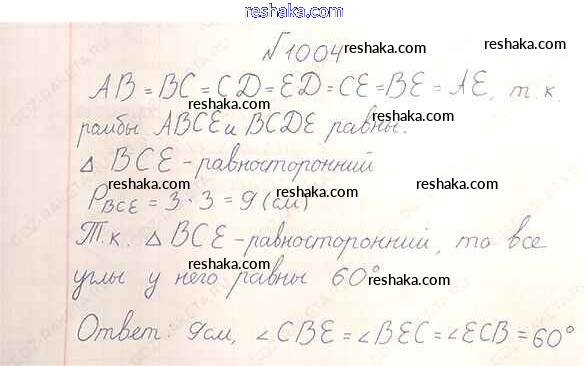 reshaka.com
№1004
reshaka.com
AB = BC = CD = ED = CE = BE = AE, т.к.
reshaka.com
ромбы ABCE и BCDE равны.
reshaka.com
△ BCE - равносторонний
reshaka.com reshaka.com reshaka.com
P BCE = 3 · 3 = 9 (см)
Т.к. △ BCE - равносторонний, то все
reshaka.com
углы у него равны 60°
reshaka.com
Ответ: 9см, ∠CBE = ∠BEC = ∠ECB = 60°
reshaka.com